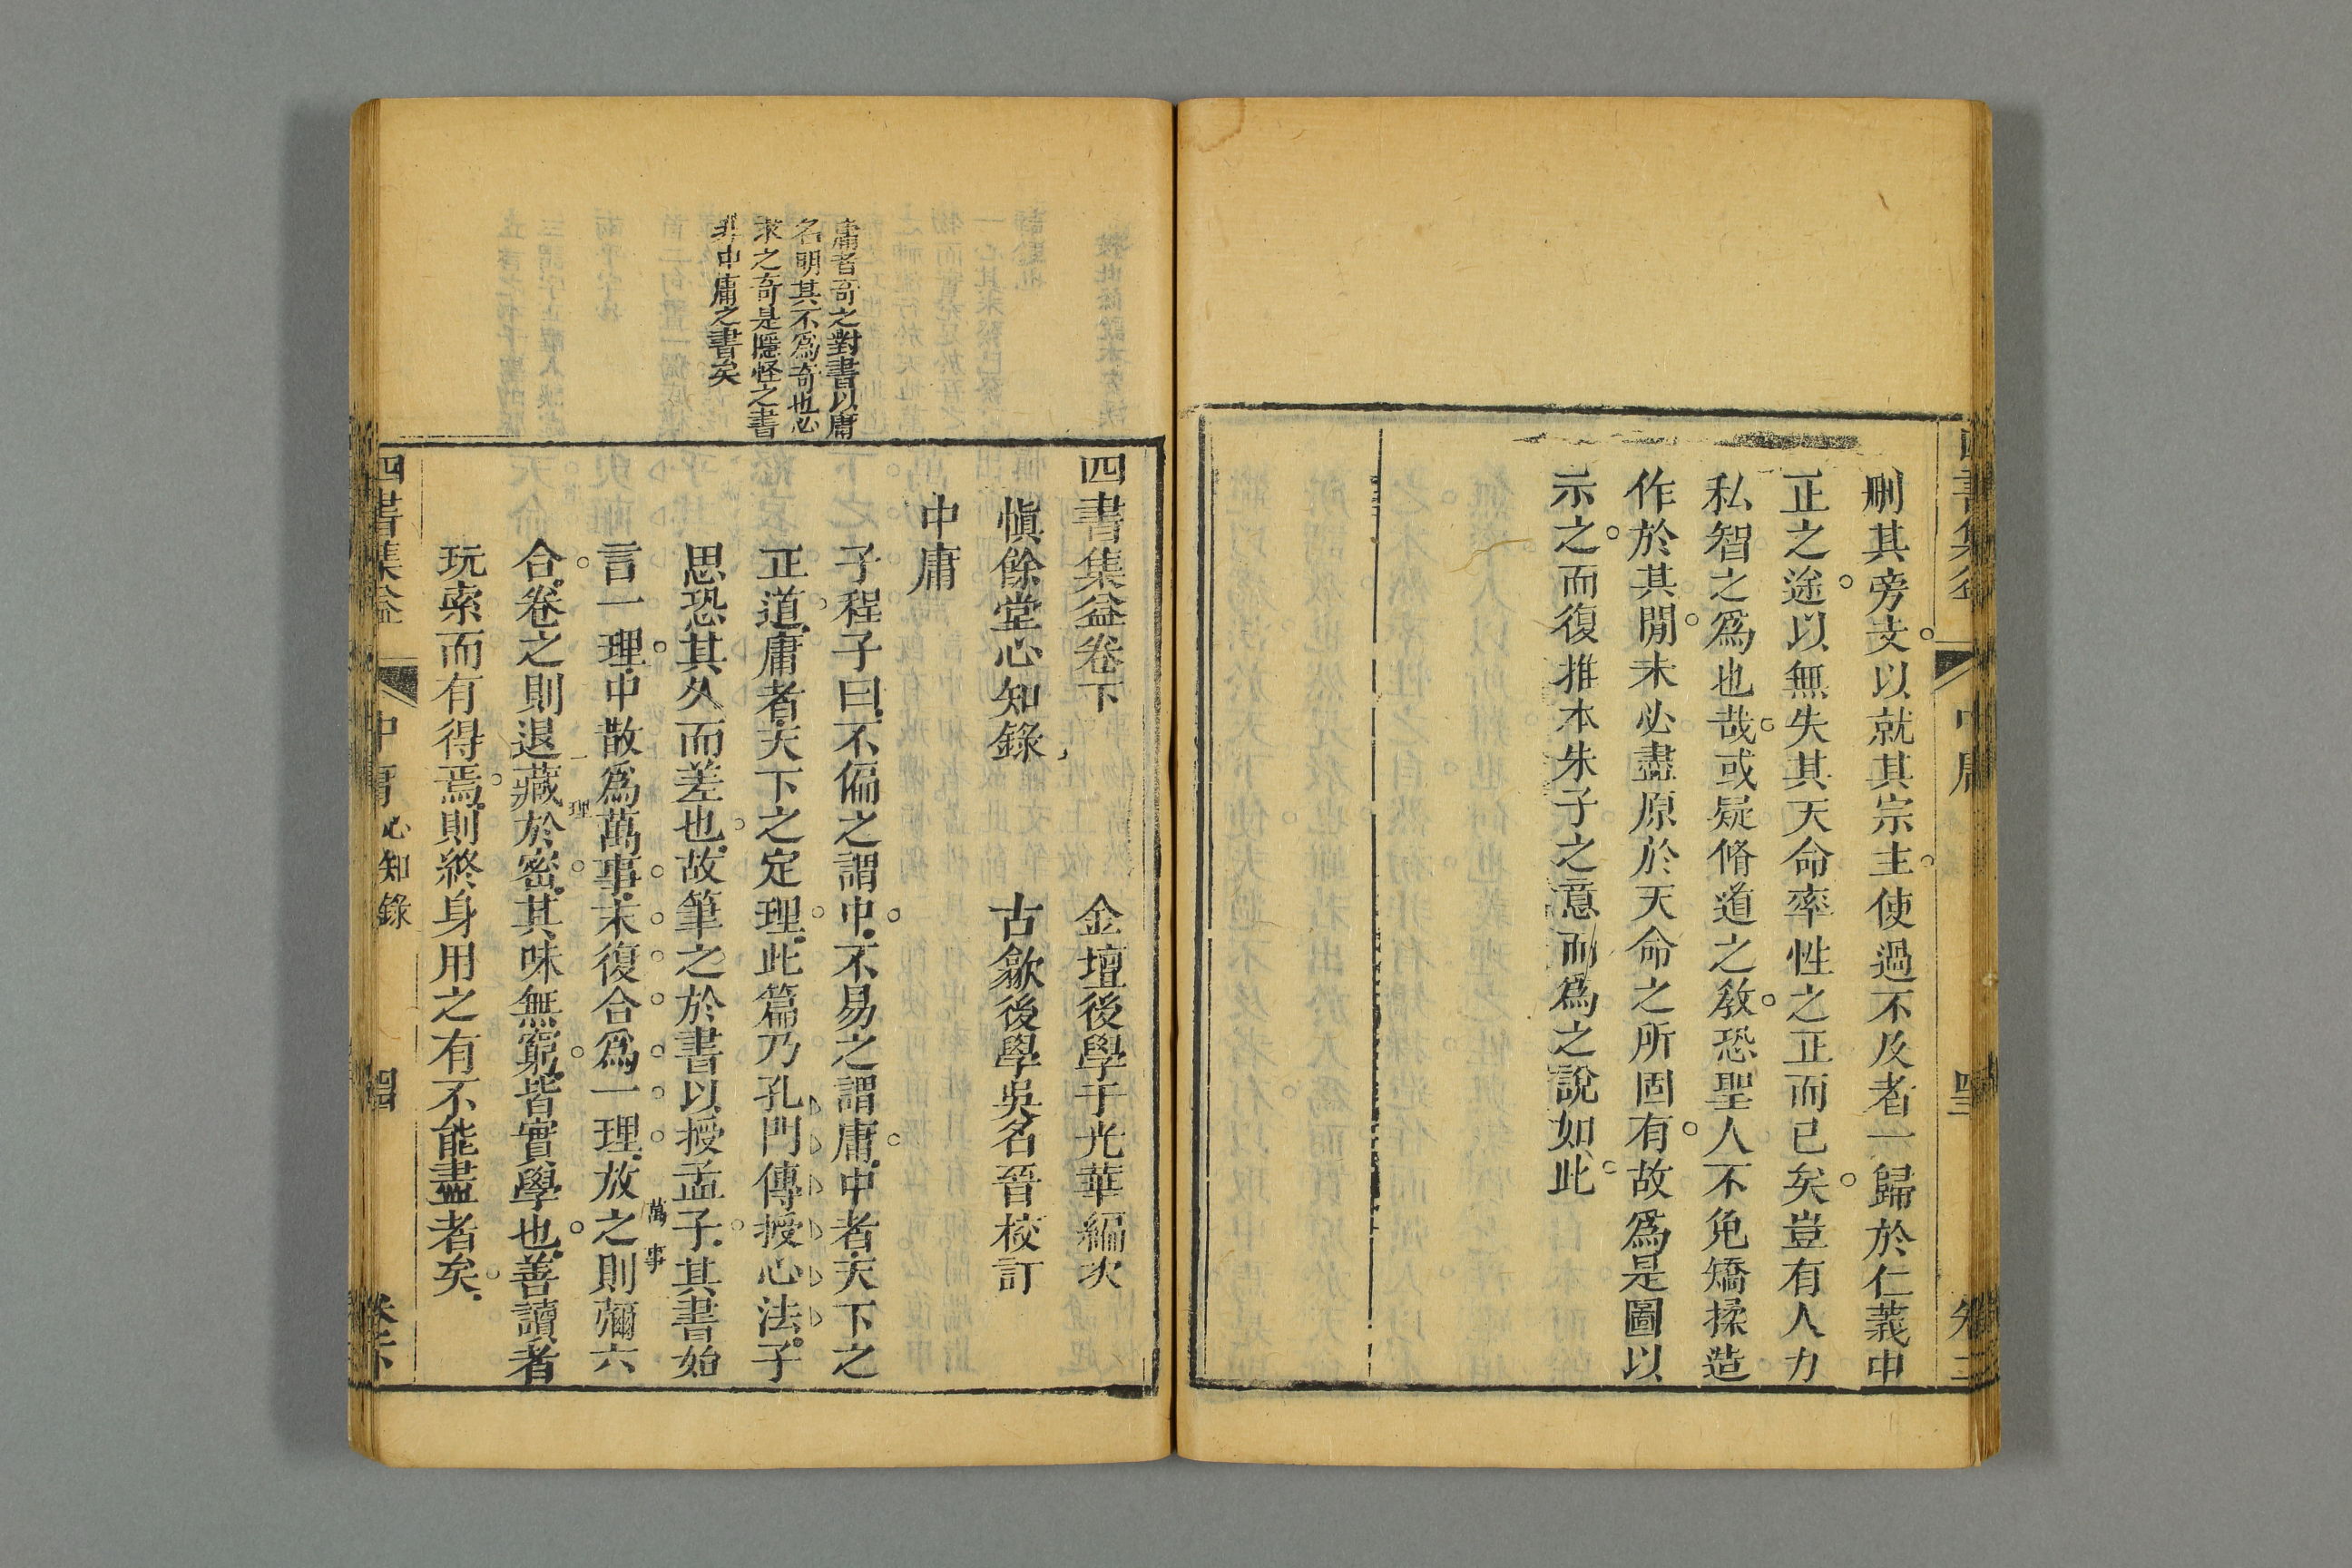 刪其旁支以就其宗主使過不及者一歸於仁義中
正之途以無失其天命率性之正而已矣豈有人力
私智之爲也哉或疑脩道之敎恐聖人不免矯揉造
作於其閒未必盡原於天命之所固有故爲是圖以
示之而復推本朱子之意而爲之說如此
庸者奇之對書以庸
名明其不爲奇也必
求之奇是隱怪之書
非中庸之書矣
四書集益卷下
金壇後學于光華編次
愼餘堂心知錄
古歙後學吳名晉校訂
中庸
子程子曰不偏之謂中不易之謂庸中者天下之
正道庸者天下之定理此篇乃孔門傳授心法子
思恐其久而差也故筆之於書以授孟子其書始
言一理中散爲萬事末復合爲一理放之則彌六
萬事
合卷之則退藏於密其味無窮皆實學也善讀者
一理
玩索而有得焉則終身用之有不能盡者矣
四書集益
中庸心知錄